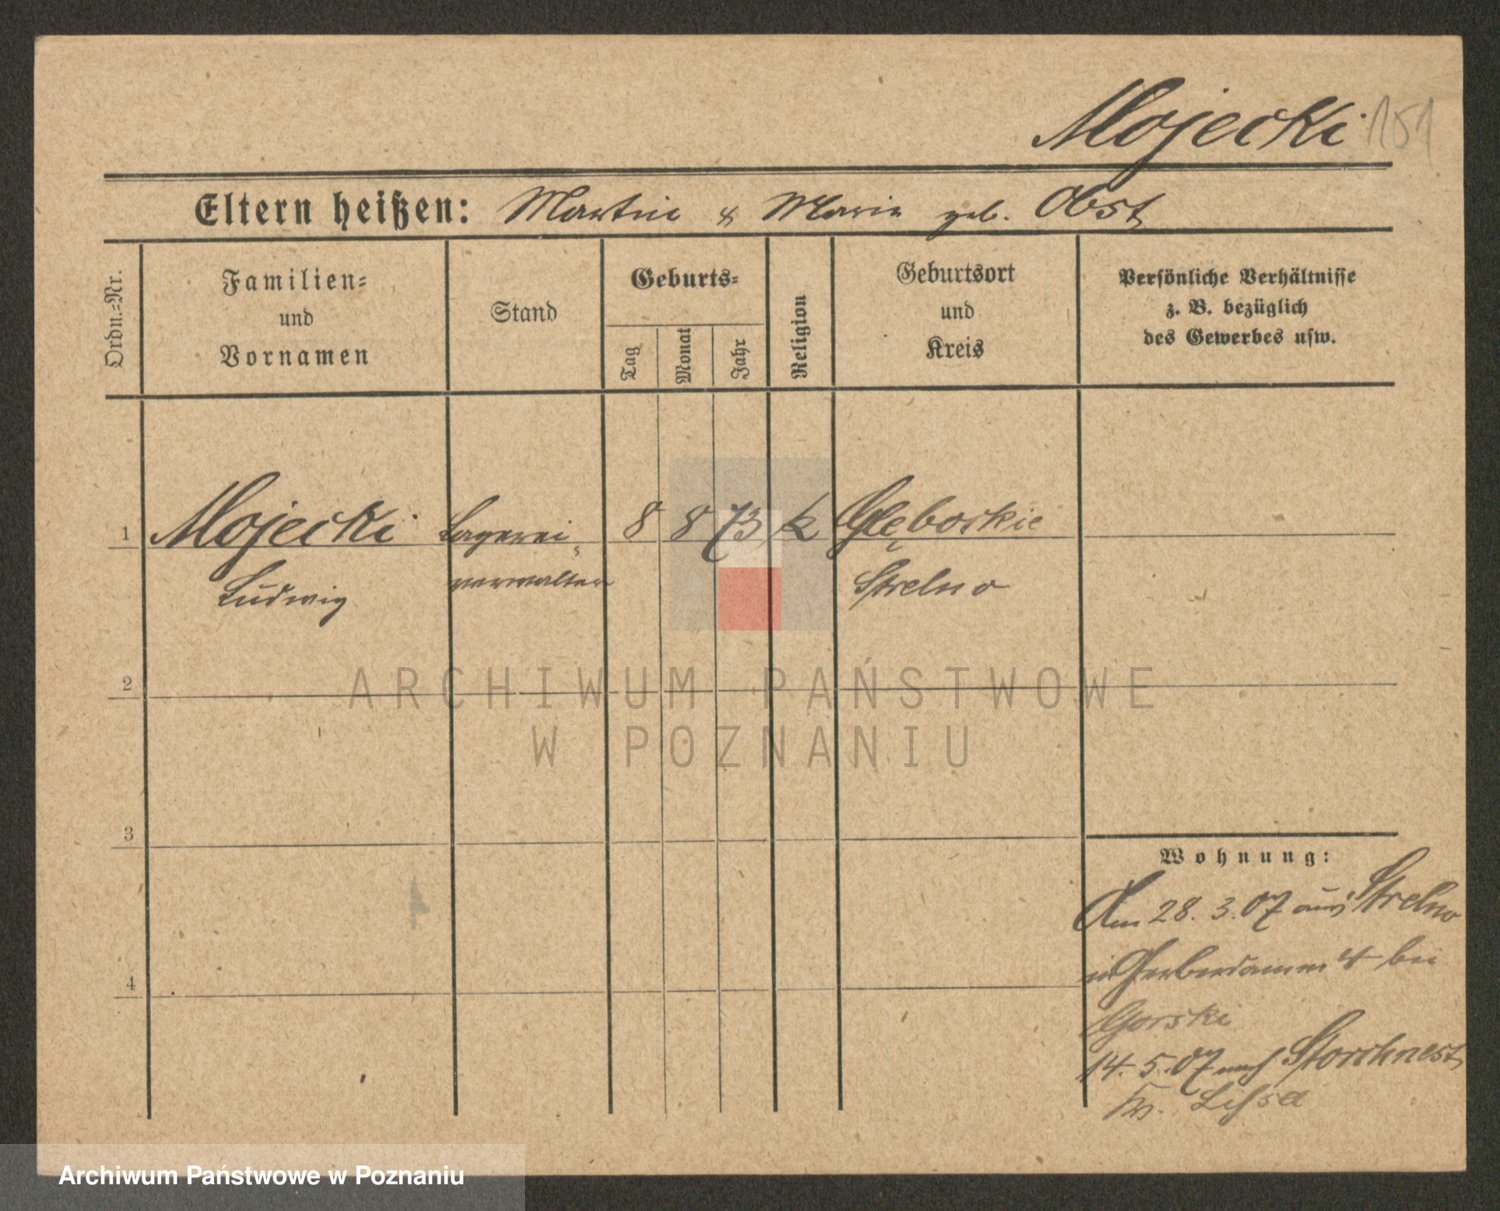 Mojecki 151
Eltern heißen: Martin & Marie geb. Obst
Ordn.=Nr.
Familien=
und
Vornamen
Stand
Geburts=
Tag
Monat
Jahr
Religion
Geburtsort
und
Kreis
Persönliche Verhältnisse
z. B. bezüglich
des Gewerbes usw.
1 Mojecki 8 8 73 k Glęboskie
Ludwig verwalter Strelno
2
3
4
Wohnung:
Am 28. 3. 07 aus Strelno
in Gerberdamm 4 bei
Gorski
14. 5. 07 nach Storchnest
Kr. Lissa
ARCHIWUM PAŃSTWOWE
W POZNANIU
Archiwum Państwowe w Poznaniu